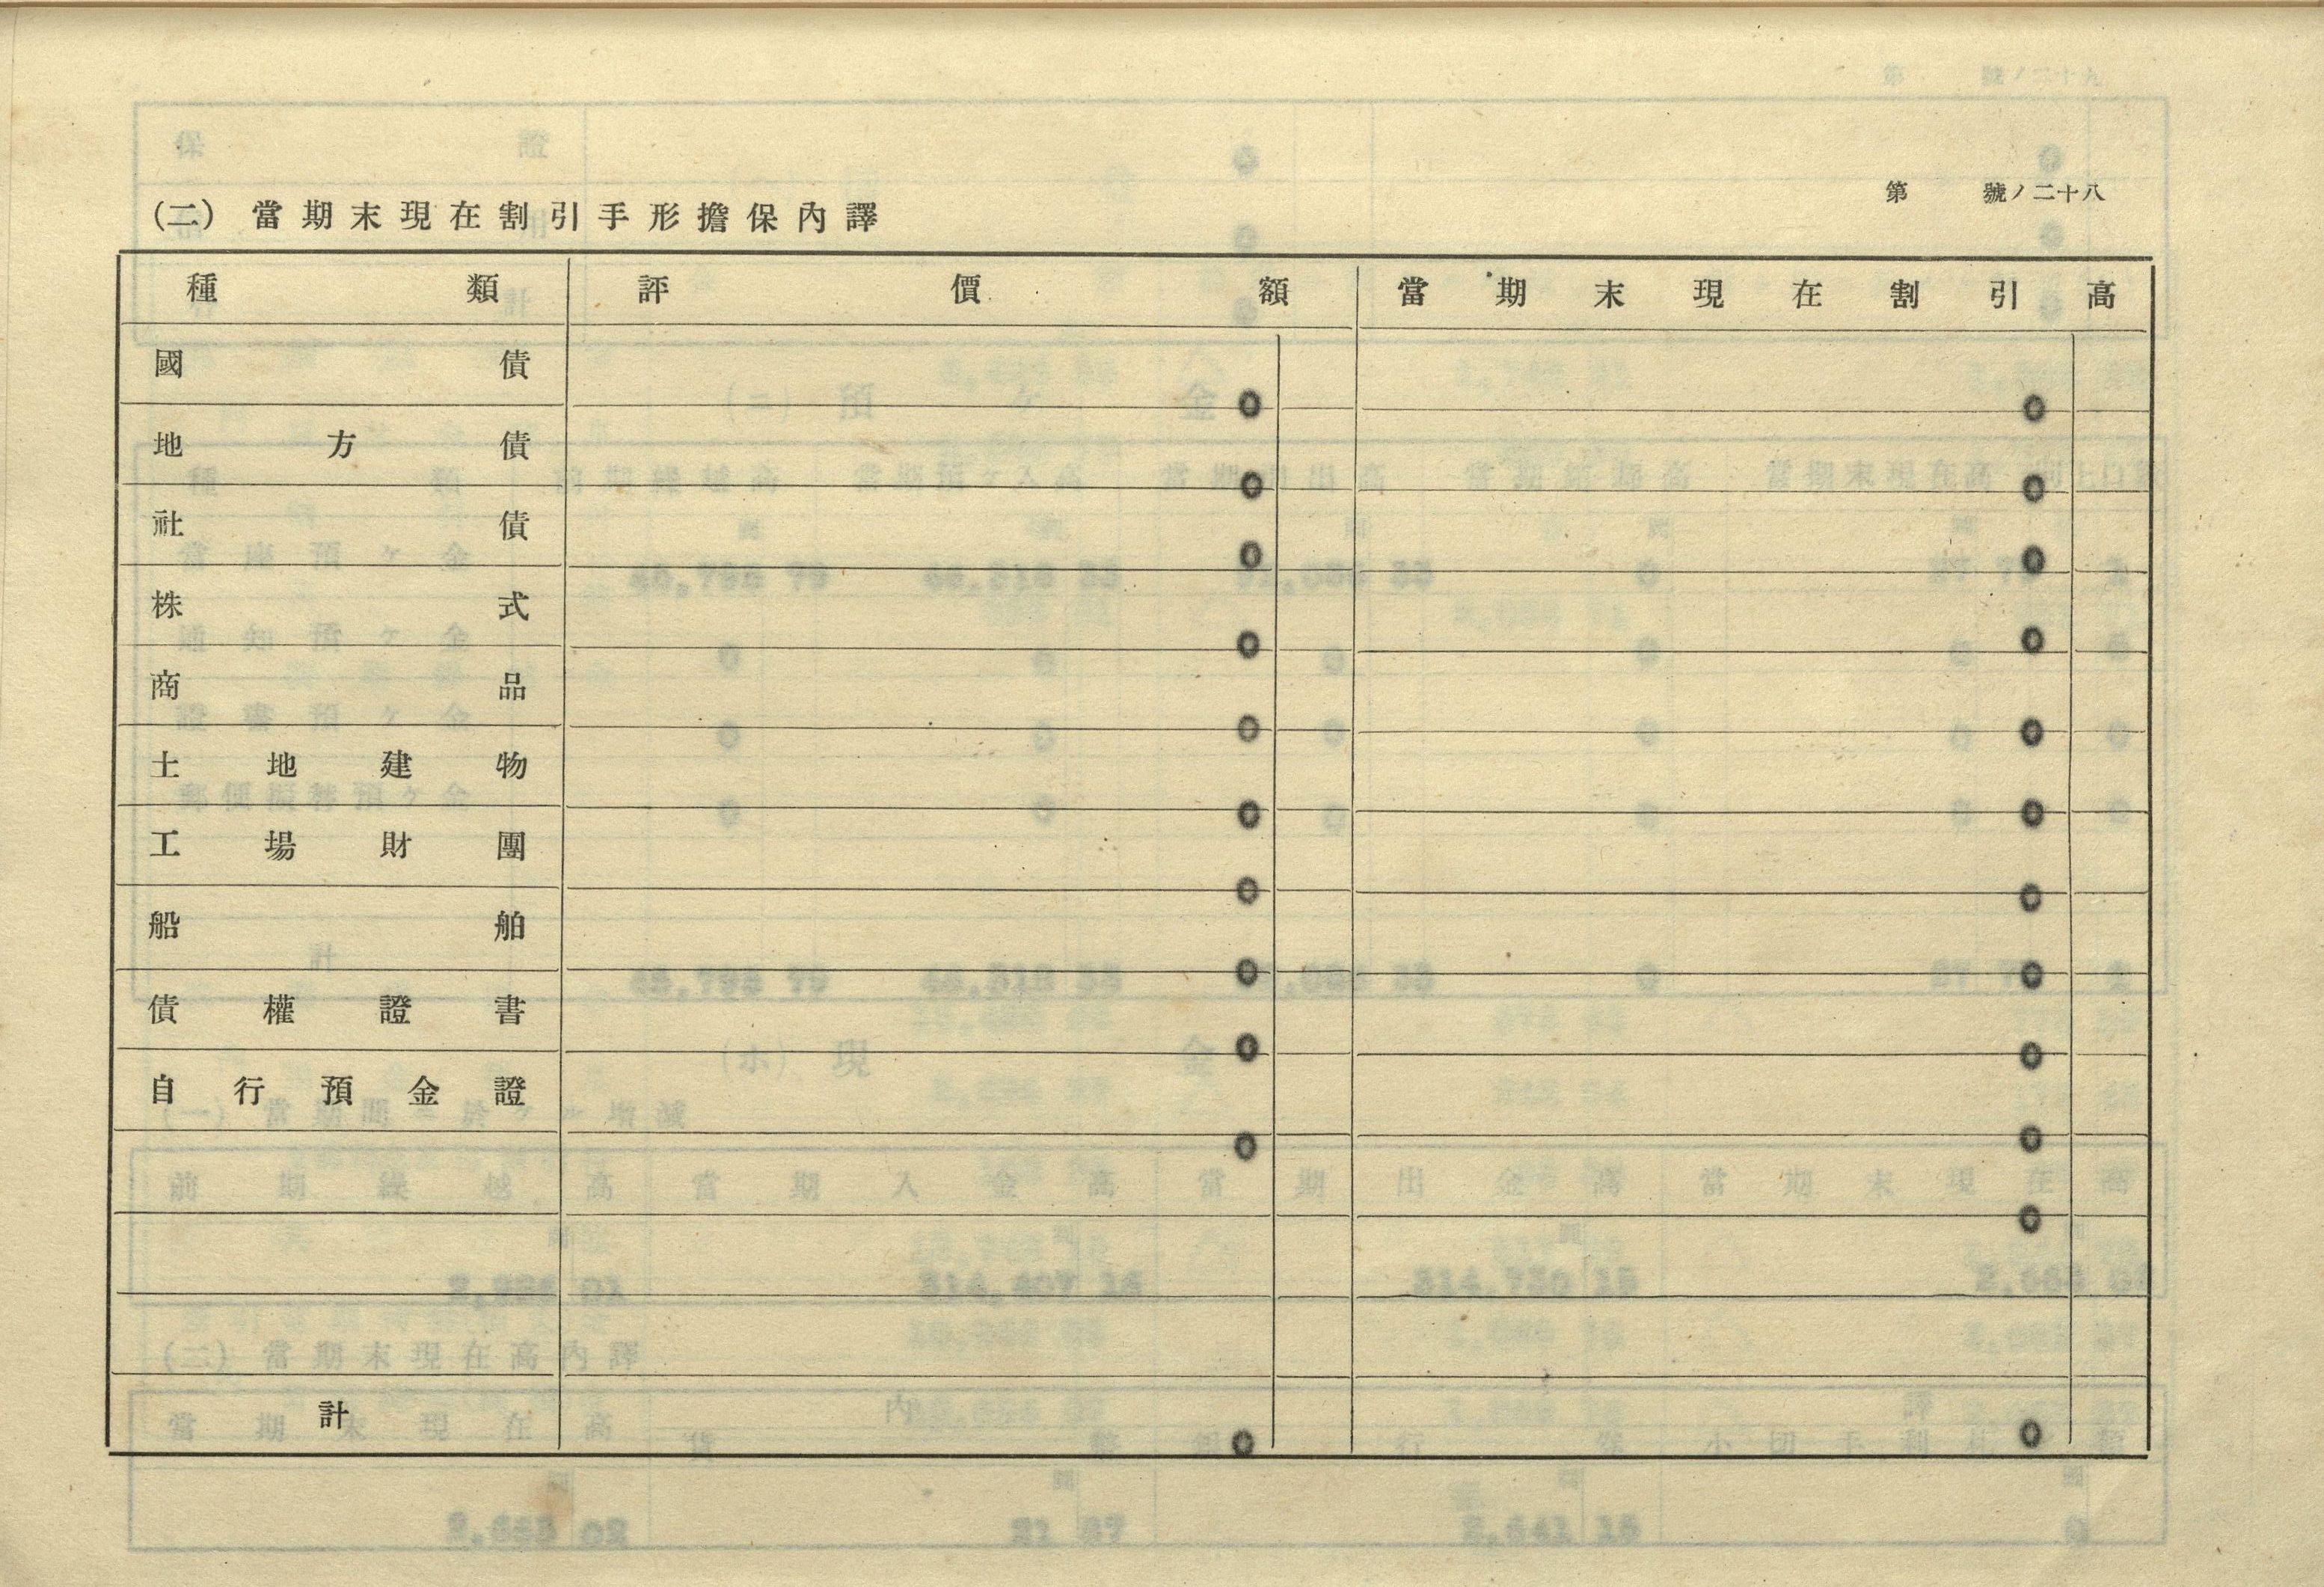 第　號ノ二十八
(二) 當期末現在割引手形擔保內譯
種類　評價額　當期末現在割引高
國債　0　0
地方債　0　0
社債　0　0
株式　0　0
商品　0　0
土地建物　0　0
工場財團　0　0
船舶　0　0
債權證書　0　0
自行預金證　0　0
0
計　0　0